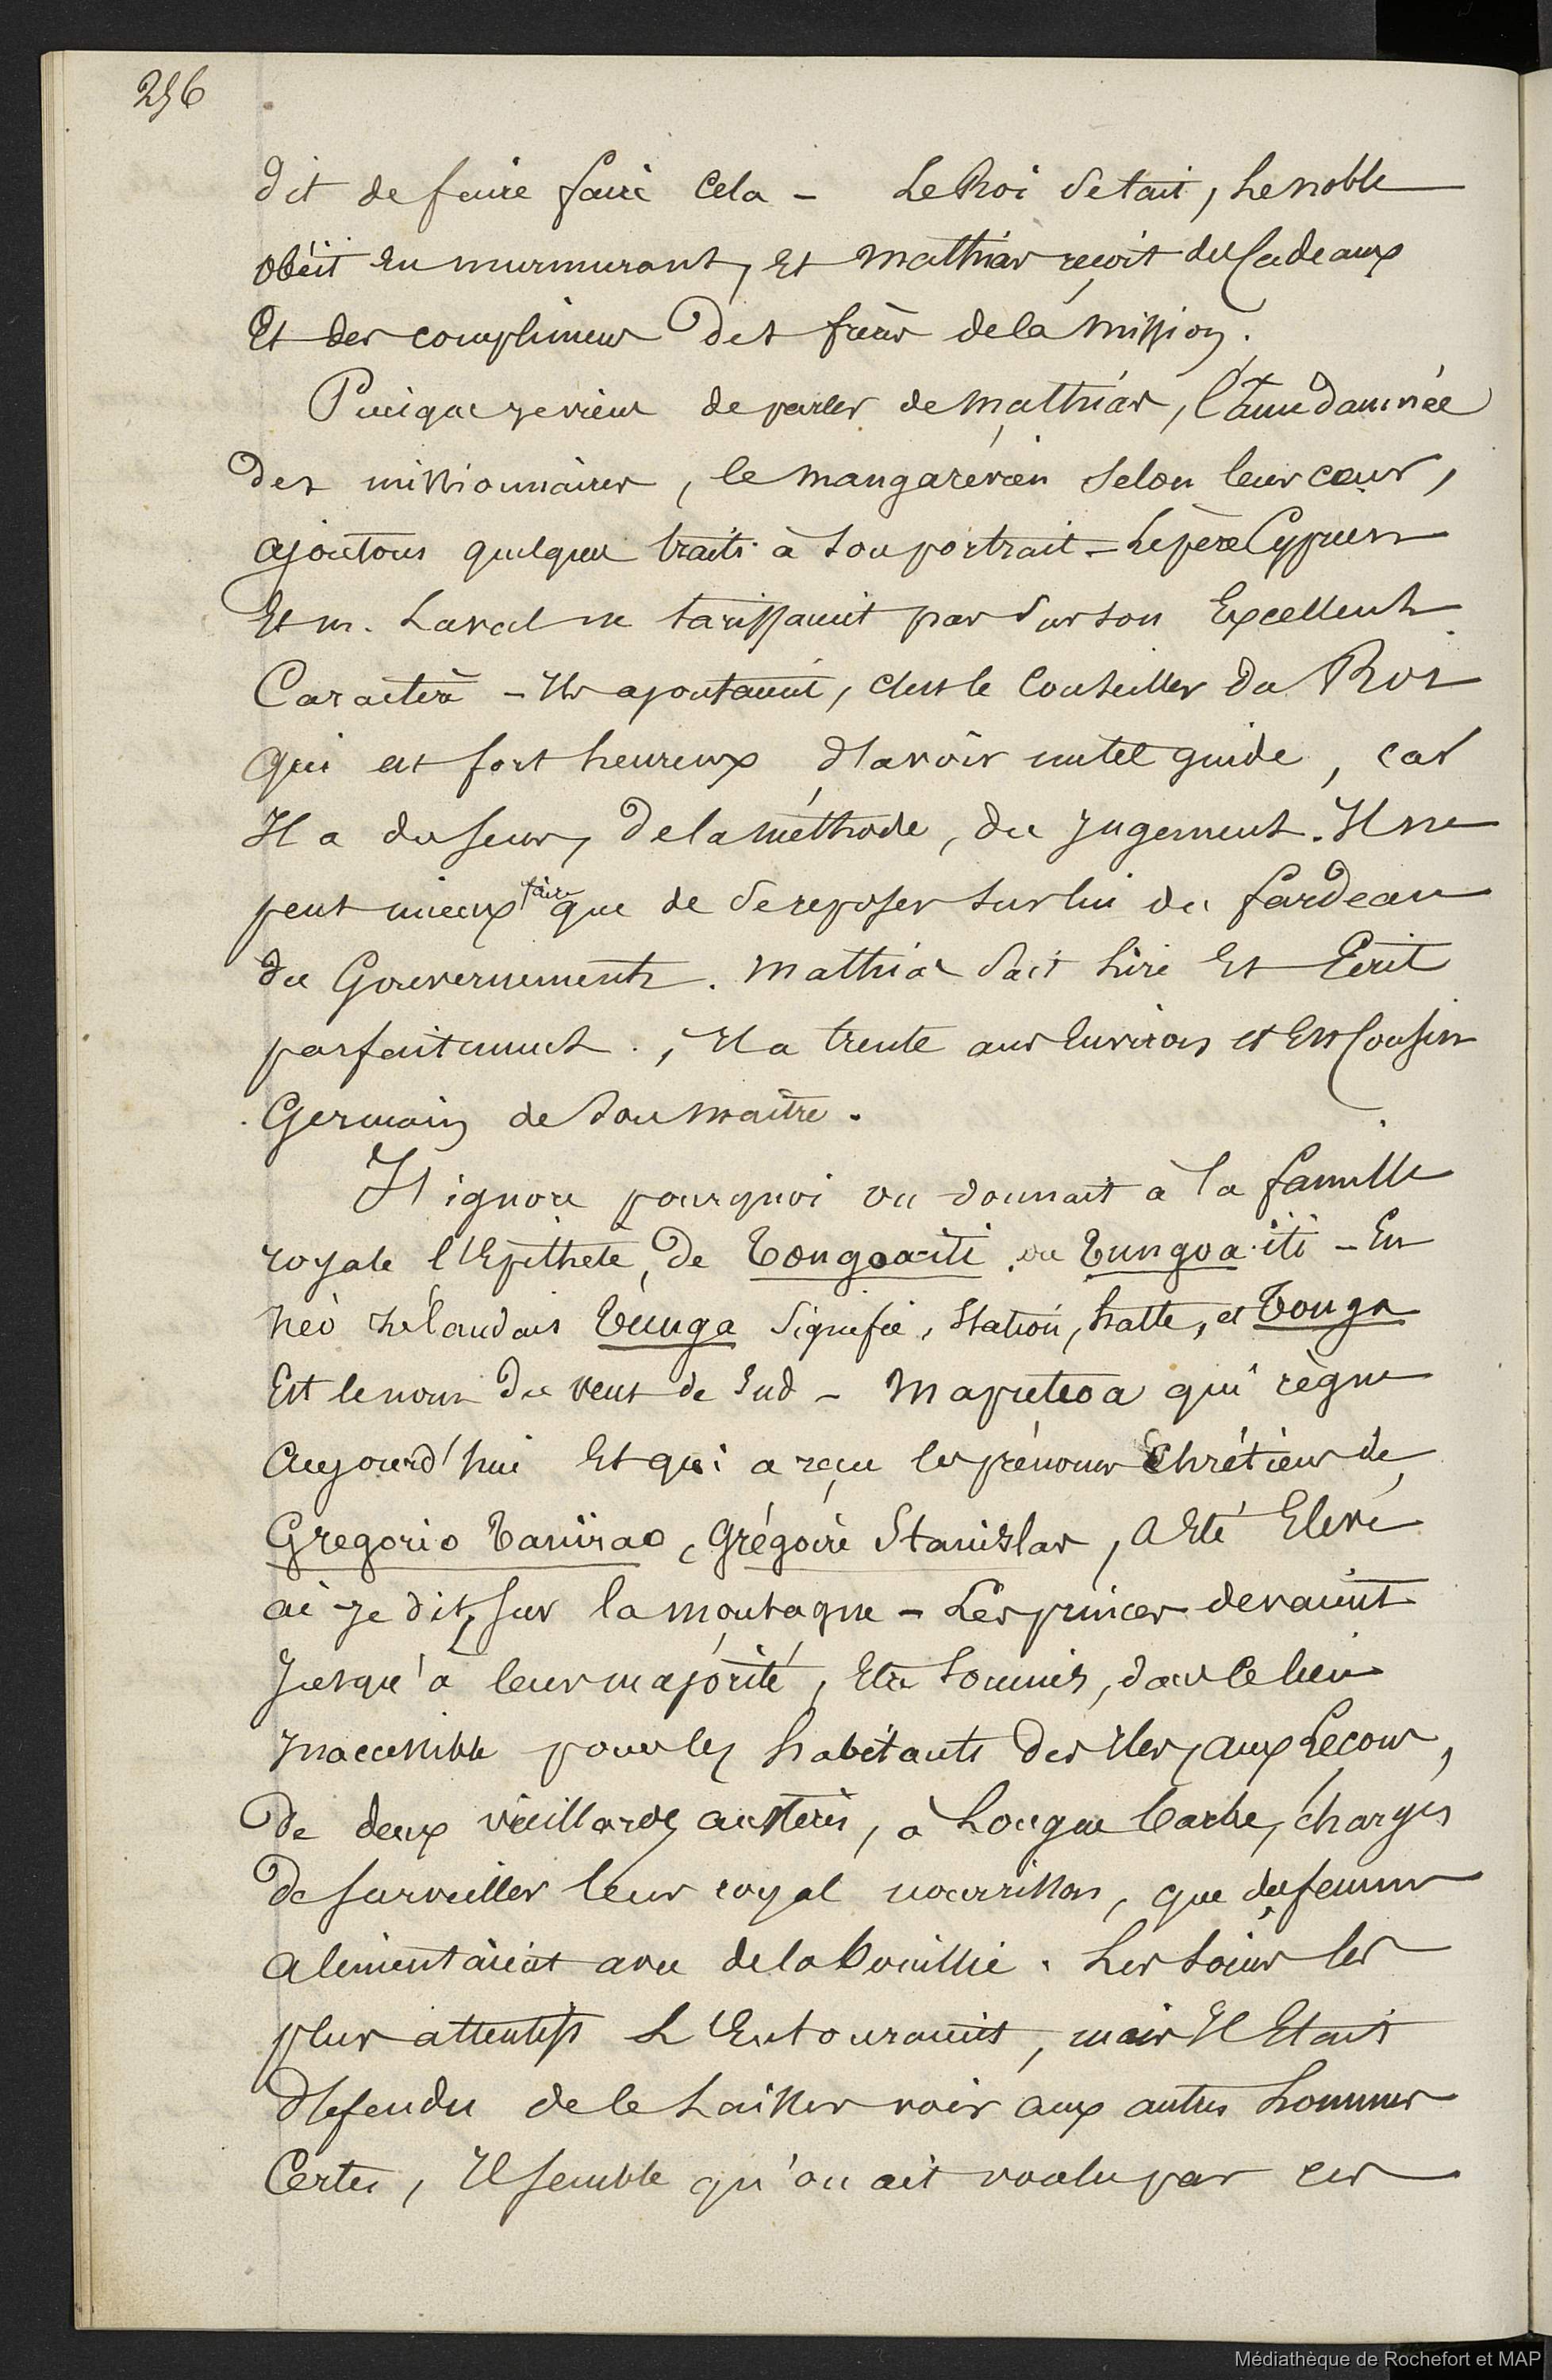 256
dit de faire faire cela – Le Roi se tait, le noble
obéit en murmurant, et Mathias reçoit des cadeaux
et des complimens des frères de la mission.
Puisque je viens de parler de Mathias, l'âme damnée
des missionnaires, le mangarévien selon leur cœur,
ajoutons quelques traits à son portrait – Le père Cyprien
et m. Laval ne tarissaient pas sur son excellent
Caractère – Ils ajoutaient, c'est le Conseiller du Roi
qui est fort heureux d'avoir un tel guide, car
Il a du sens, de la méthode, du jugement. Il ne
peut mieux faire que de se reposer sur lui du fardeau
du Gouvernement. Mathias sait lire et Ecrit
parfaitement., Il a trente ans environ et est Cousin
Germain de son maître.
Il ignore pourquoi on donnait à la famille
royale l'Epithete, de Tongoa-iti ou Tungoa-iti – En
néo zélandais Tunga signifie, station, halte, et Tonga
Est le nom du vent de sud – Maputeoa qui règne
aujourd'hui et qui a reçu les prénoms Chrétiens de
Gregorio Tanirao, Grégoire Stanislas, a été Elevé
ai-je dit, sur la montagne – Les princes devaient
Jusqu'à leur majorité, être soumis, dans ce lieu
Inaccessible pour les habitants des îles, aux Leçons,
De deux vieillards austères, à Longue barbe, chargés
De surveiller leur royal nourrisson, que des femmes
alimentaient avec de la bouillie. Les soins les
plus attentifs L'Entouraient, mais Il Etait
défendu de le Laisser voir aux autres hommes
Certes, Il semble qu'on ait voulu par ces
Médiathèque de Rochefort et MAP